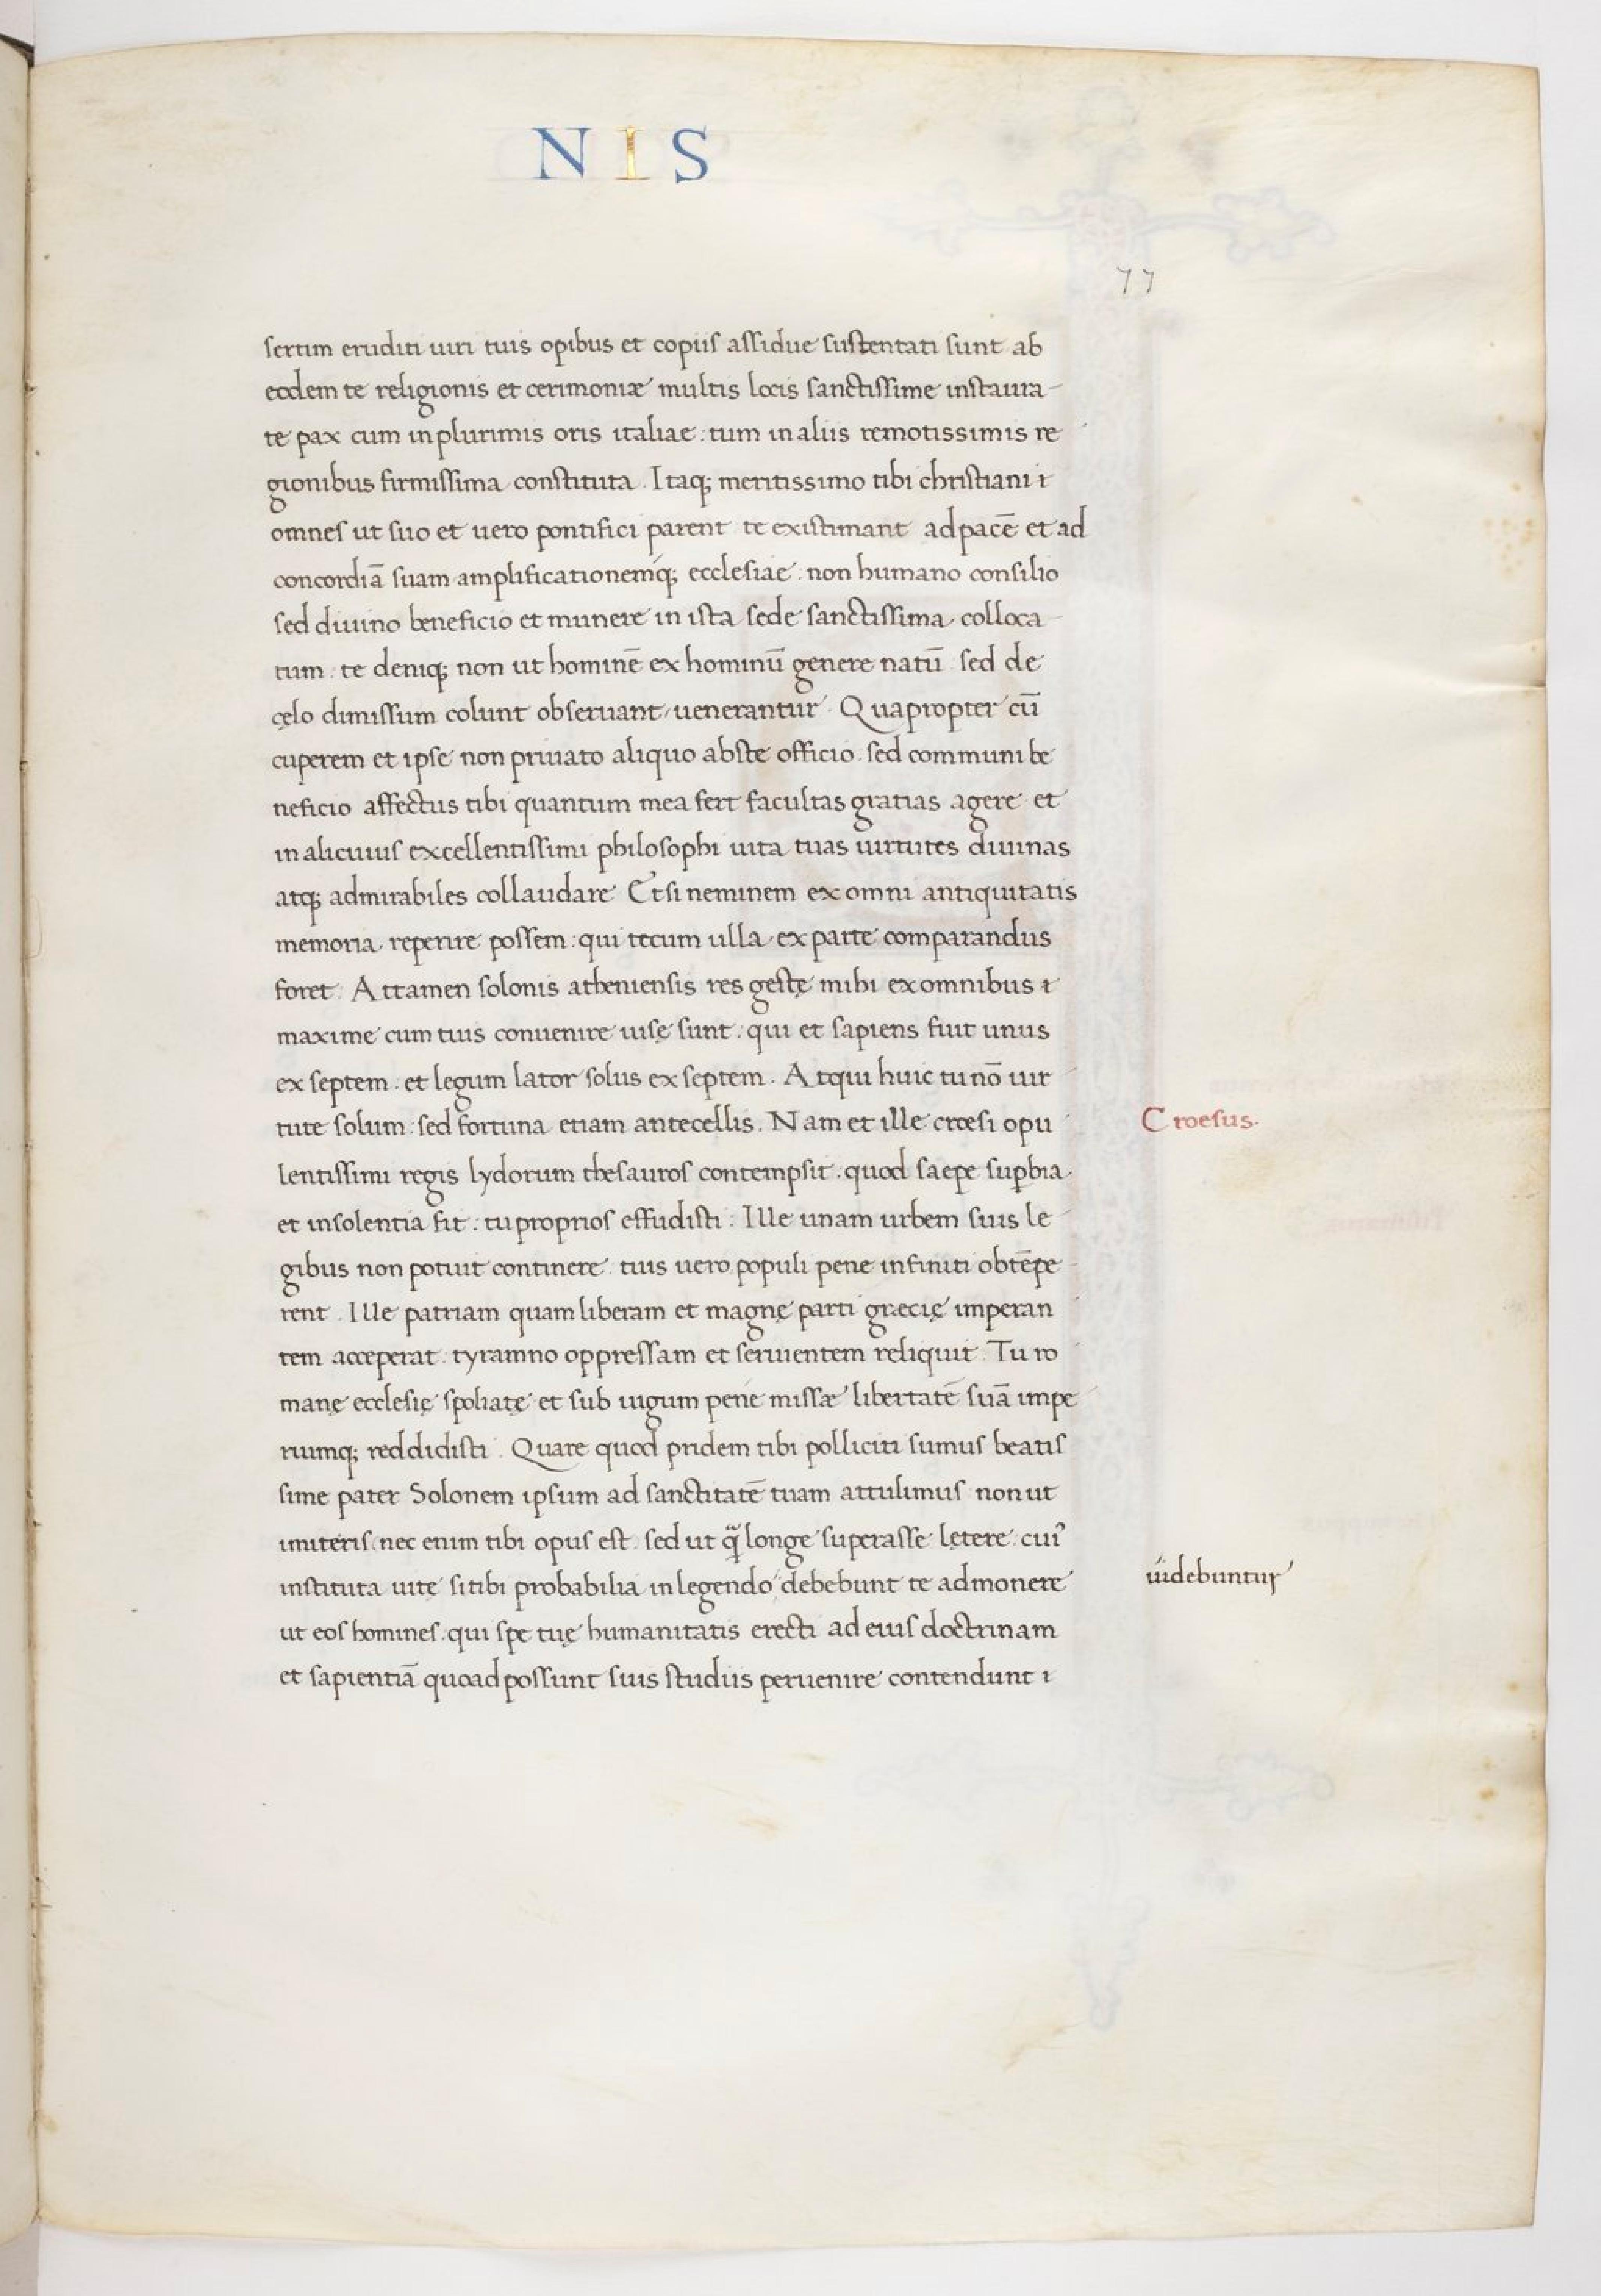 NIS
77
sertim eruditi uiri tuis opibus et copiis assidue sustentati sunt ab
eodem te religionis et cerimoniæ multis locis sanctissime instaura-
te pax cum in plurimis oris italiae : tum in aliis remotissimis re
gionibus firmissima constituta . Itaq; meritissimo tibi christiani ı
omnes ut suo et uero pontifici parent te existimant ad pacē et ad
concordiā suam amplificationemq; ecclesiae : non humano consilio
sed diuino beneficio et munere in ista sede sanctissima colloca-
tum : te deniq; non ut hominē ex hominū genere natū sed de
cęlo dimissum colunt obseruant uenerantur . Quapropter cū
cuperem et ipse non priuato aliquo abste officio . sed communi be
neficio affectus tibi quantum mea fert facultas gratias agere et
in alicuius excellentissimi philosophi uita tuas uirtutes diuinas
atq; admirabiles collaudare Etsi neminem ex omni antiquitatis
memoria reperire possem : qui tecum ulla ex parte comparandus
foret . Attamen solonis atheniensis res gestę mihi ex omnibus ı
maxime cum tuis conuenire uisę sunt : qui et sapiens fuit unus
ex septem . et legum lator solus ex septem . Atqui huic tu nō uir
tute solum : sed fortuna etiam antecellis . Nam et ille crœsi opu
Croesus.
lentissimi regis lydorum thesauros contempsit : quod saepe suꝑbia
et insolentia fit : tu proprios effudisti : Ille unam urbem suis le
gibus non potuit continere : tuis uero populi pene infiniti obtēpe
rent . Ille patriam quam liberam et magnę parti græcię imperan
tem acceperat : tyramno oppressam et seruientem reliquit . Tu ro
manę ecclesię spoliatę et sub iugum pene missæ libertatē suā impe
riumq; reddidisti . Quare quod pridem tibi polliciti sumus beatis
sime pater Solonem ipsum ad sanctitatē tuam attulimus non ut
imiteris . nec enim tibi opus est . sed ut q̃ longe superasse lętere : cuiꝰ
instituta uitę si tibi probabilia in legendo debebunt te admonere
uidebuntur
ut eos homines . qui spe tuę humanitatis erecti ad eius doctrinam
et sapientiā quoad possunt suis studiis peruenire contendunt ı